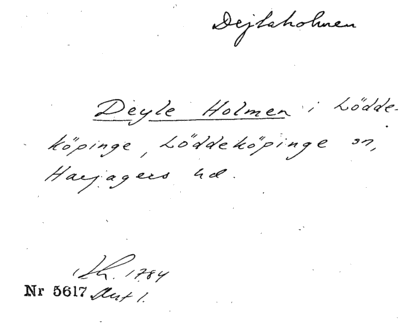 Dejlaholmen
Deyle Holmen i Lödde-
köpinge, Löddeköpinge sn,
Harjagers hd.
Lh. 1784
Nr 5617 Akt 1.